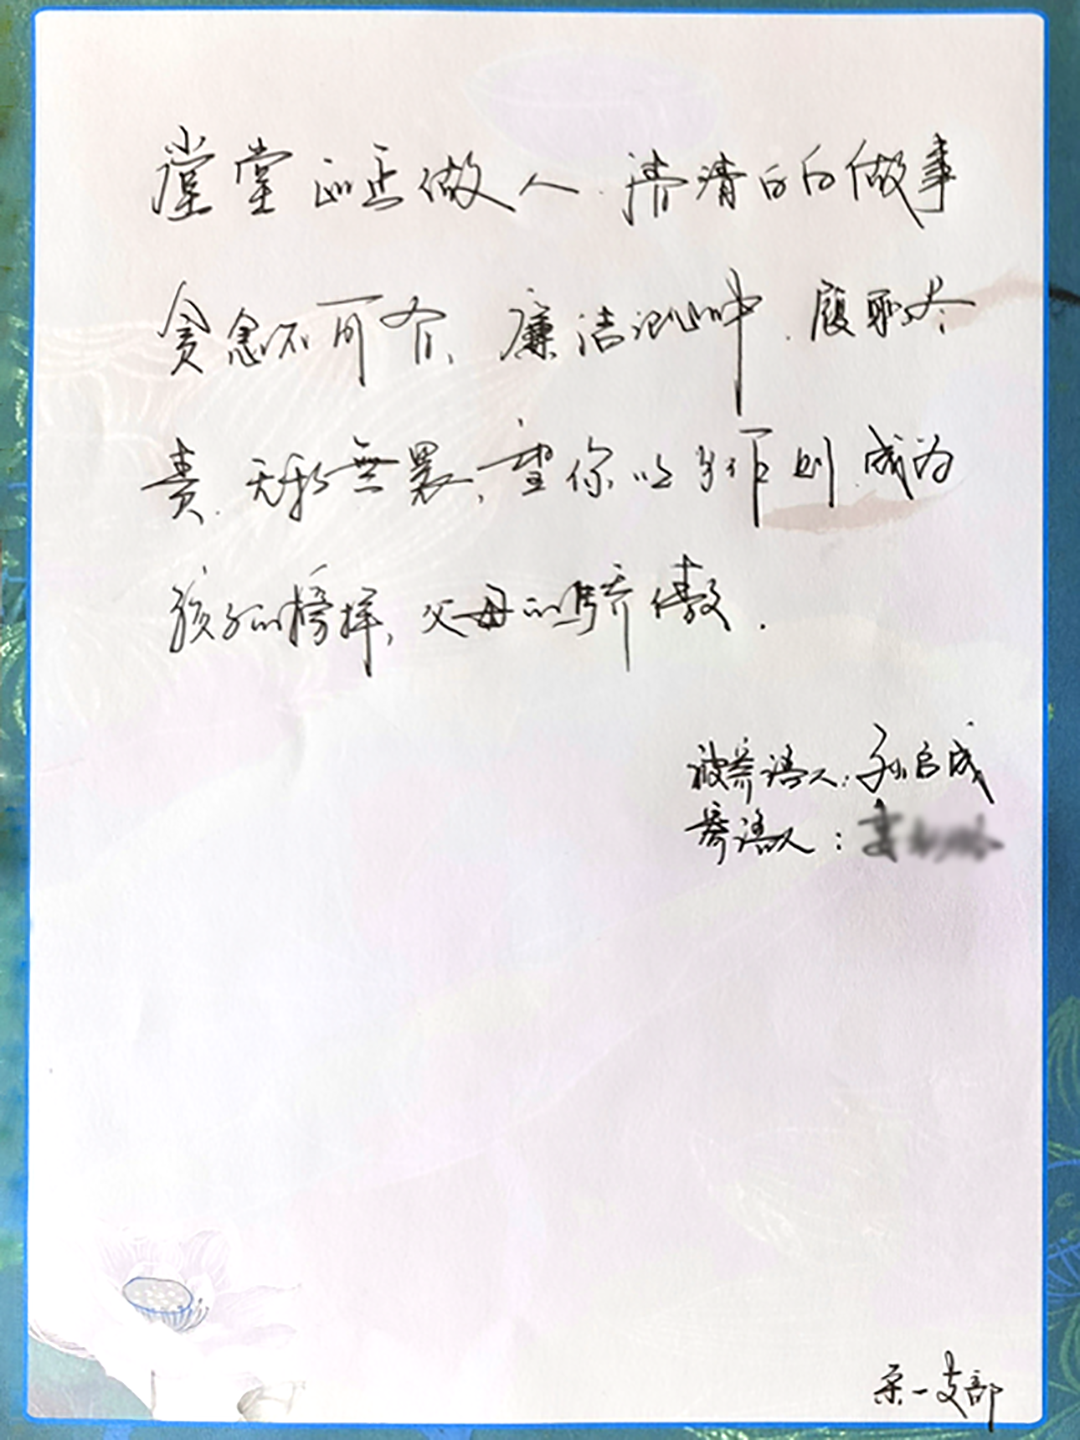 堂堂正正做人.清清白白做事
贪念不可有、廉洁记心中.履职尽
责.无私無畏,望你以身作则.成为
孩子的榜样,父母的骄傲.
被寄语人:孙启成
寄语人:
采一支部